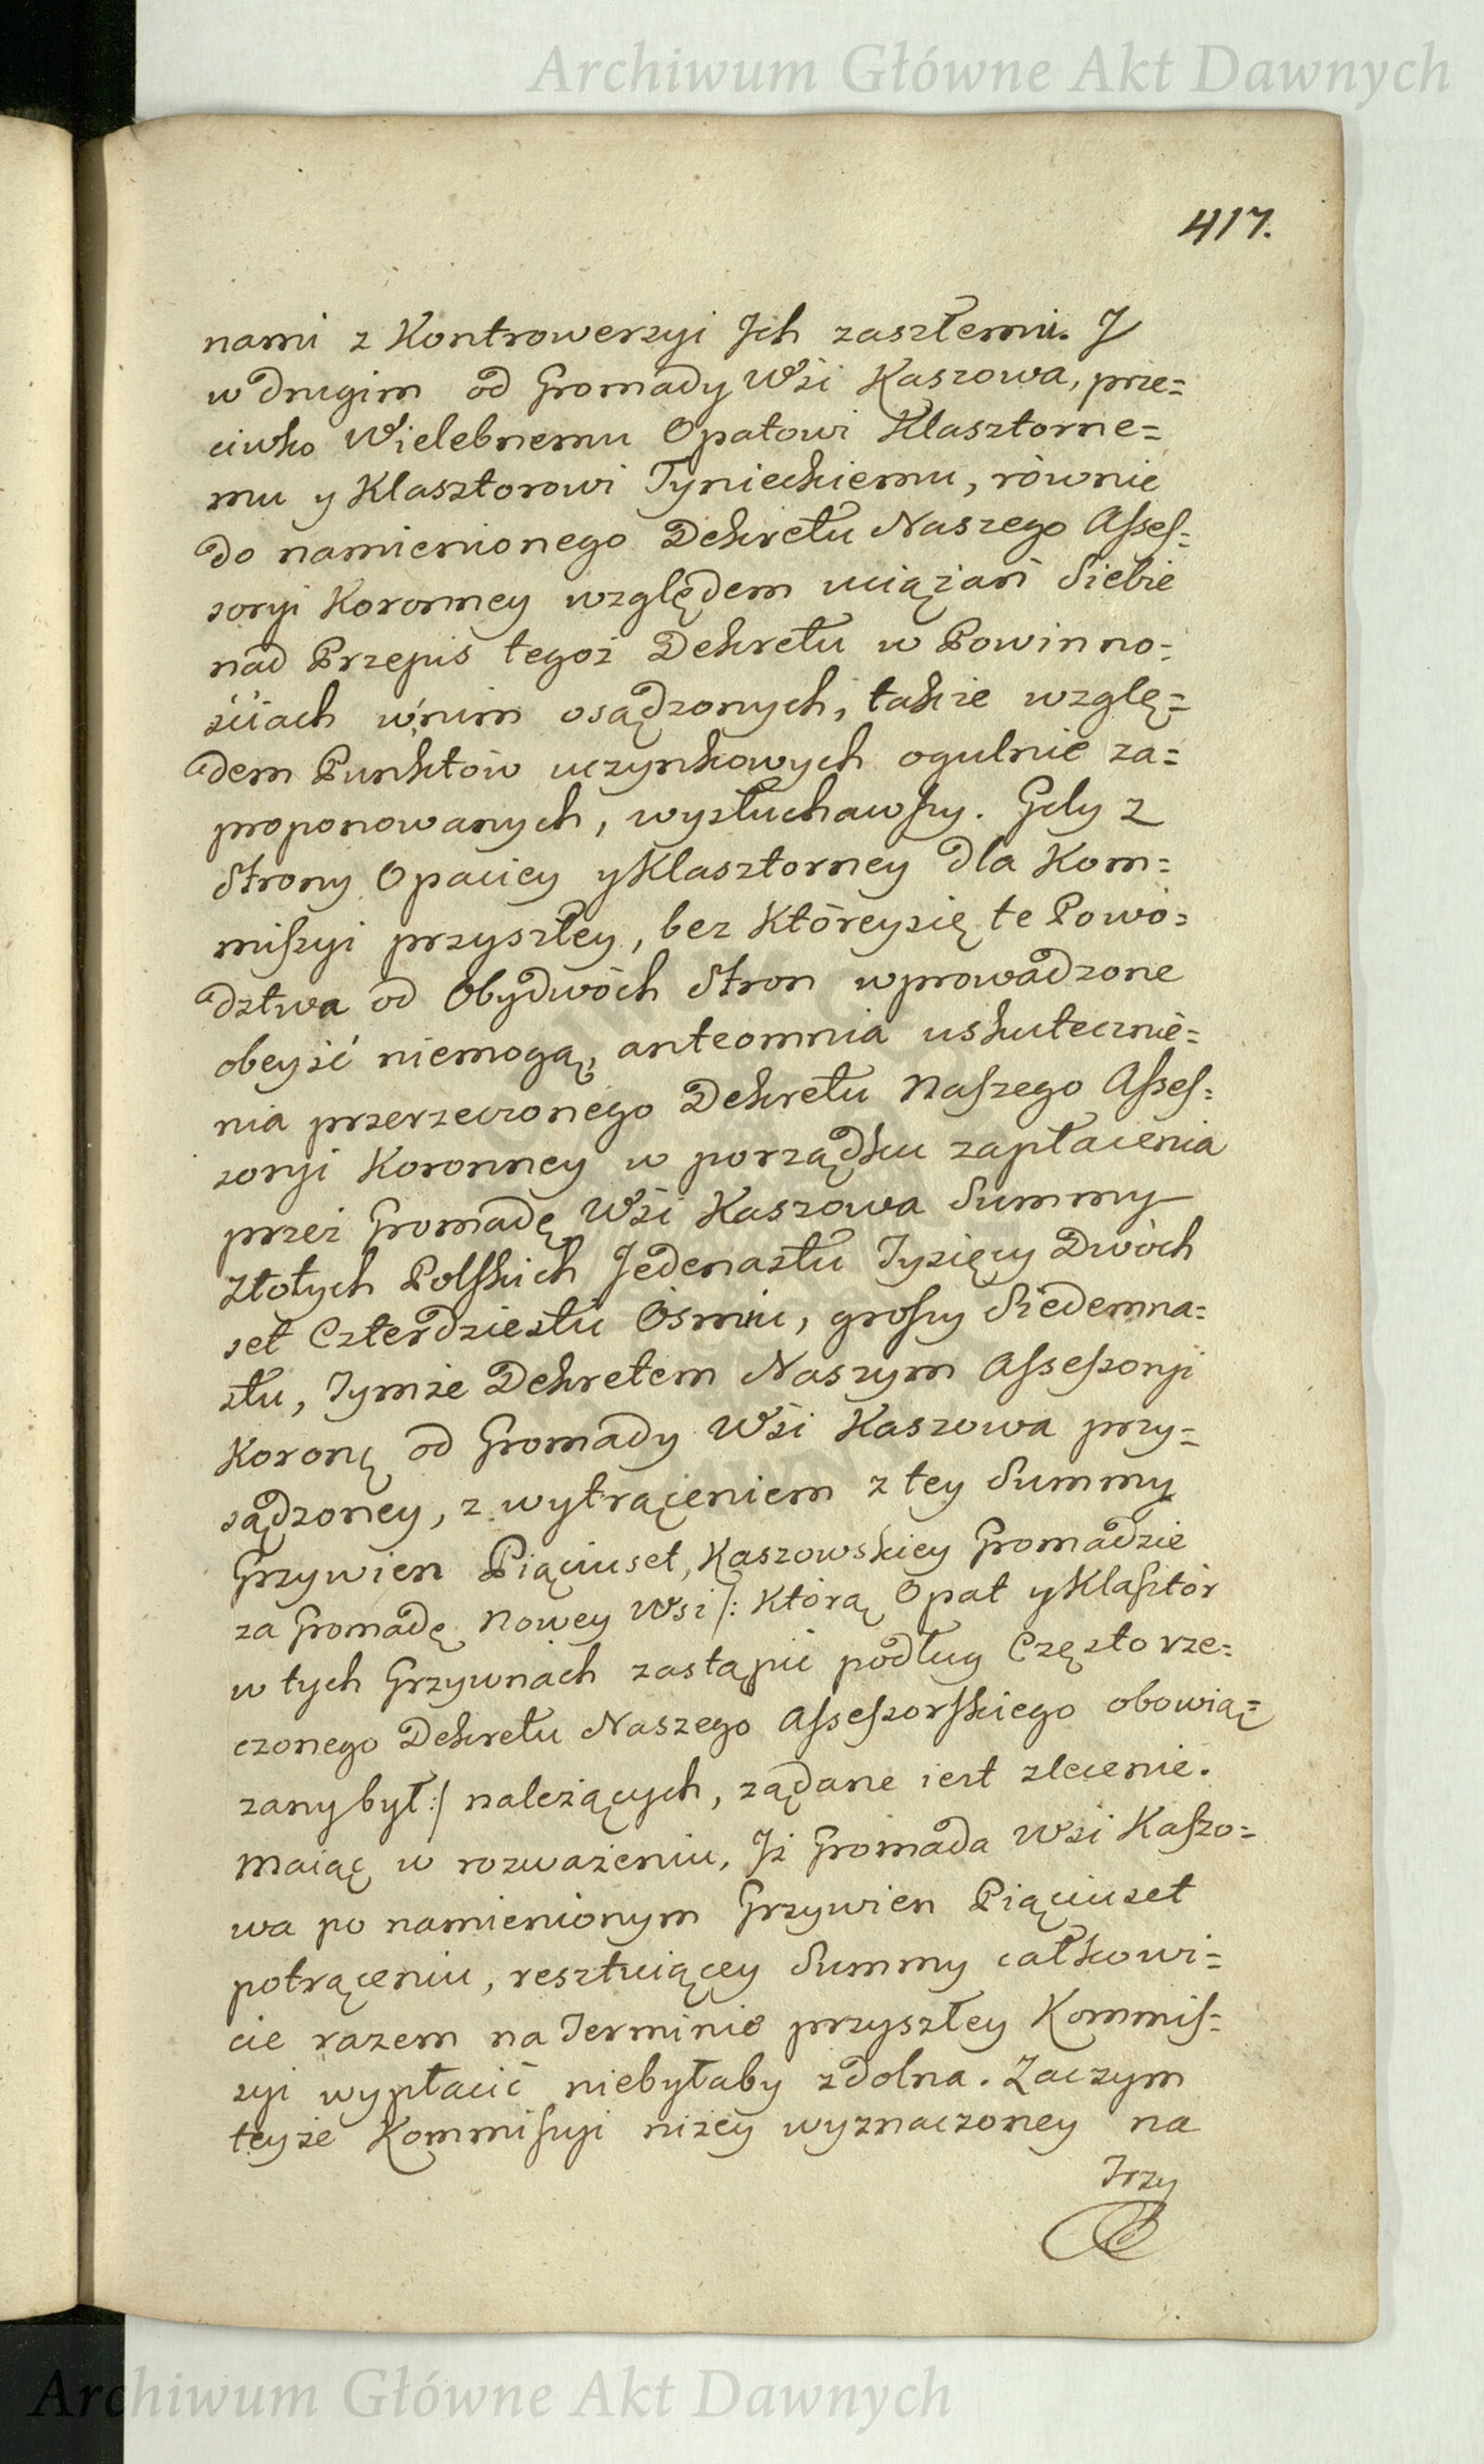 Archiwum Główne Akt Dawnych
417.
nami z Kontrowerzyi Jch zaszłemi. J
w drugim od Gromady Wśi Kaszowa, prze=
ciwko Wielebnemu Opatowi Klasztorne=
mu y Klasztorowi Tynieckiemu, równie
do namienionego Dekretu Naszego Asses=
soryi Koronney względem uciążań Siebie
nad Przepis tegoż Dekretu w Powinno=
śćiach w nim osądzonych, także wzglę=
dem Punktów uczynkowych ogulnie za=
proponowanych, wysłuchawszy. Gdy z
Strony Opaciey y Klasztorney dla Kom=
missyi przyszłey, bez Któreysię te Powo=
dztwa od Obydwóch Stron wprowadzone
obeyść niemogą, anteomnia uskutecznie=
nia przerzeczonego Dekretu Naszego Asses=
soryi Koronney w porządku zapłacenia
przez Gromadę Wśi Kaszowa Summy
Złotych Polskich Jedenastu Tysięcy Dwóch
set Czterdziestu Ośmiu, groszy Siedemna=
stu, Tymże Dekretem Naszym Assessoryi
Koronę od Gromady Wśi Kaszowa przy=
sądzoney, z wytrąceniem z tey Summy
Grzywien Piąciuset, Kaszowskiey Gromadzie
za Gromadę Nowey Wsi /: Którą Opat y Klasztór
w tych Grzywnach zastąpić podług Często rze=
czonego Dekretu Naszego Assessorskiego obowią=
zany był :/ należących, żądane iest zlecenie.
Maiąc w rozważeniu, Jż Gromada Wśi Kaszo=
wa po namienionym Grzywien Piąciuset
potrąceniu, resztuiącey Summy całkowi=
cie razem na Terminie przyszłey Kommis=
syi wypłacić niebyłaby zdolna. Zaczym
teyże Kommissyi niżey wyznaczoney na
Trzy
Archiwum Główne Akt Dawnych